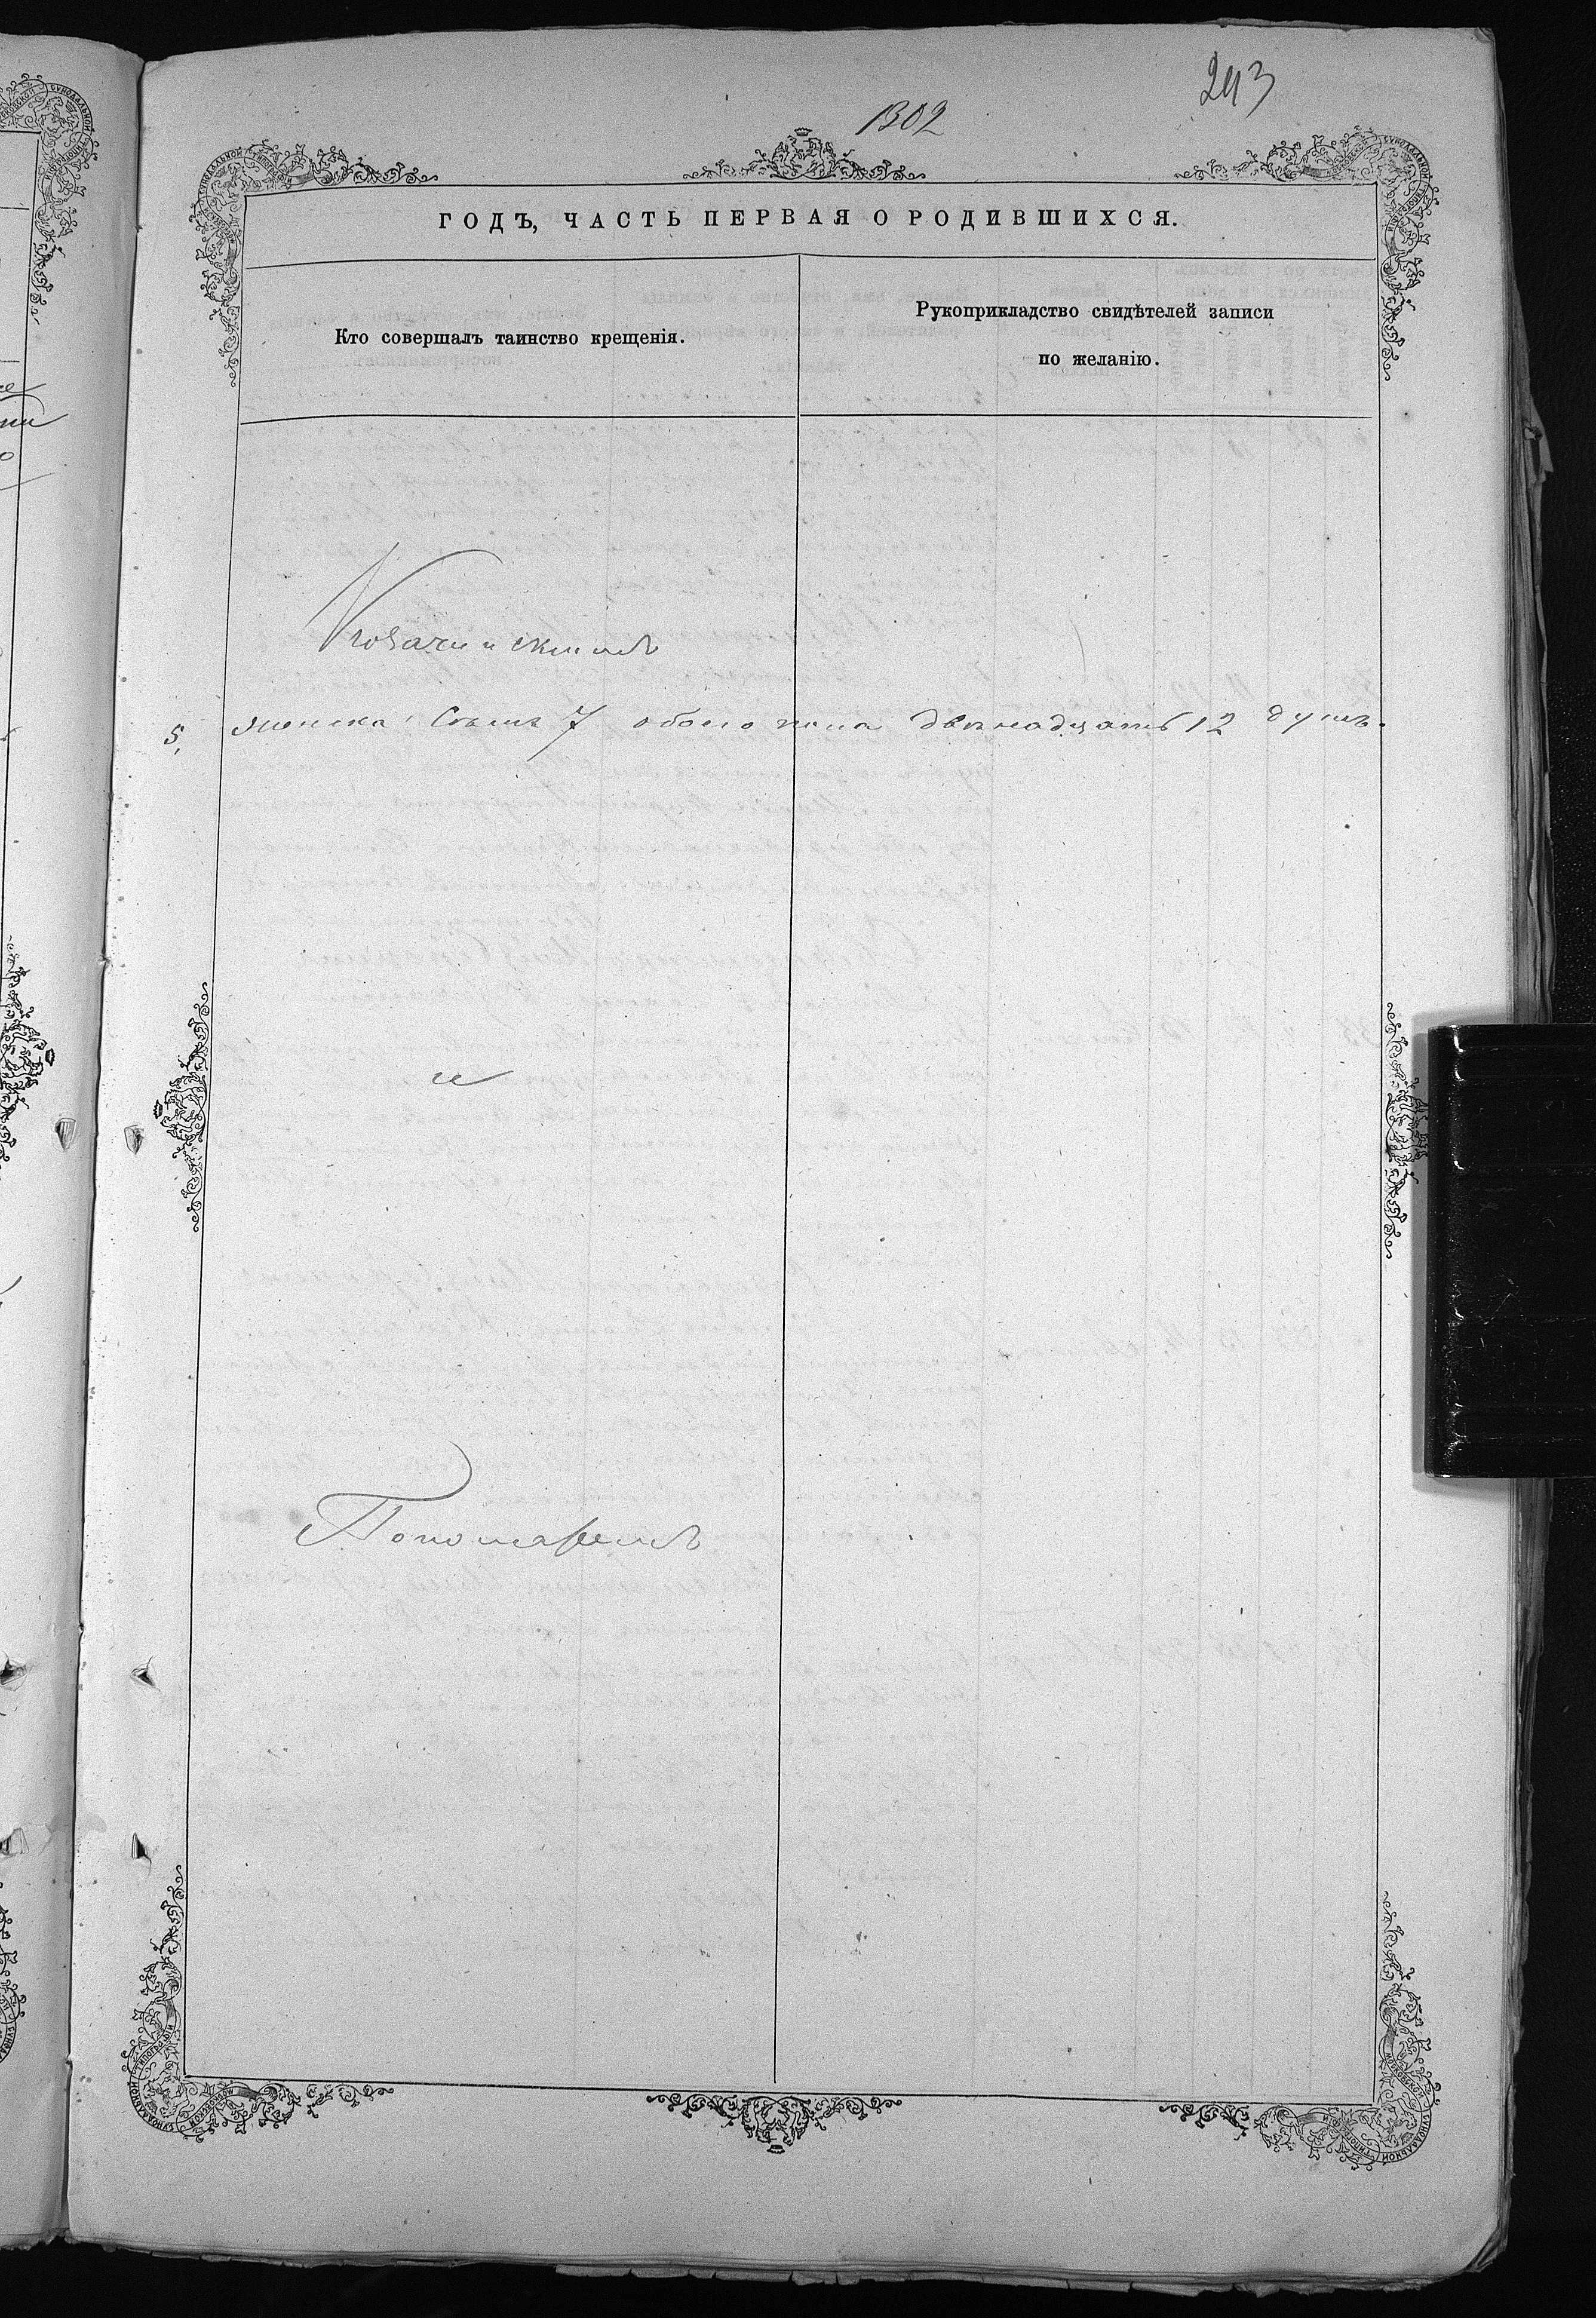 243
1302
ГОДЪ, ЧАСТЬ ПЕРВАЯ О РОДИВШИХСЯ.
Кто совершалъ таинство крещенія.
Рукоприкладство свидѣтелей записи
по желанію.
5, женска: семь 7 обоего пола двѣнадцать 12 душъ.
и
Пономаремъ